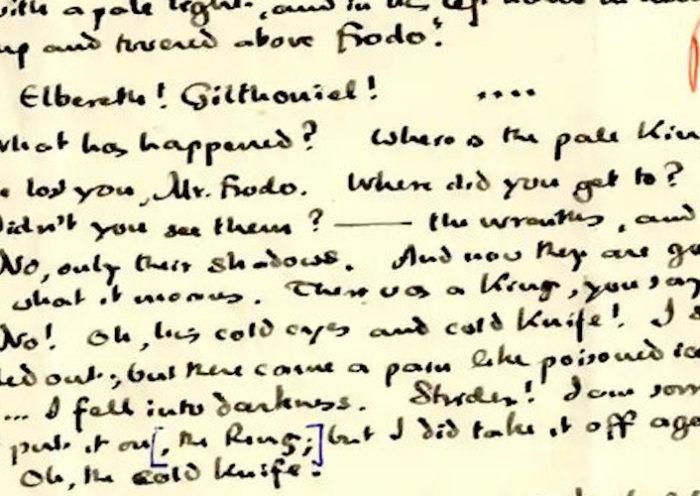 with a pale light, and in his left hand
up and towered above Frodo."
Elbereth! Gilthoniel! ....
What has happened? Where is the pale Kin
lost you, Mr. Frodo. Where did you get to?
Didn't you see them? — the wraiths, and
No, only their shadows. And now they are go
what it means. There was a King, you say
No! Oh, his cold eyes and cold knife! I
led out; but there came a pain like poisoned ic
... I fell into darkness. Strider! I am sorr
put it on [, the Ring;] but I did take it off aga
Oh, the cold knife!